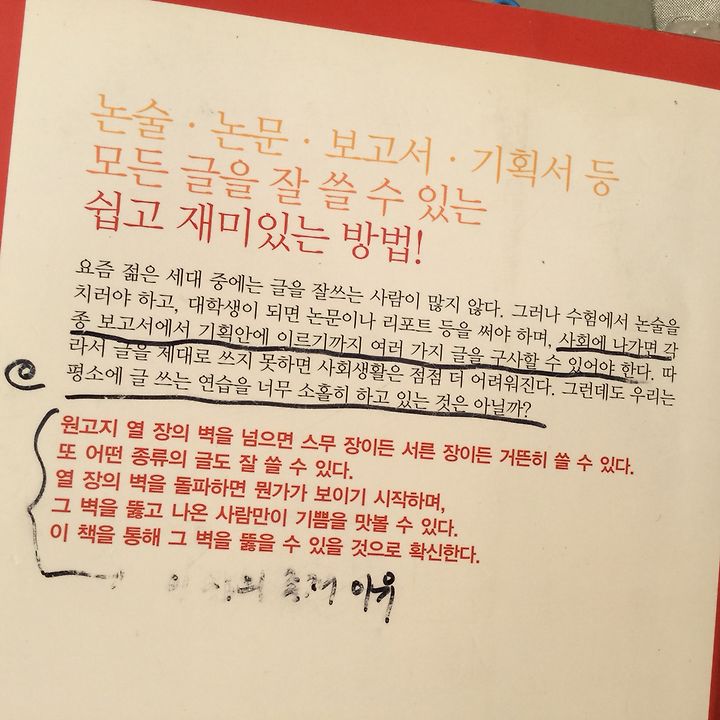 논술 · 논문 · 보고서 · 기획서 등
모든 글을 잘 쓸 수 있는
쉽고 재미있는 방법!
요즘 젊은 세대 중에는 글을 잘쓰는 사람이 많지 않다. 그러나 수험에서 논술을
치러야 하고, 대학생이 되면 논문이나 리포트 등을 써야 하며, 사회에 나가면 각
종 보고서에서 기획안에 이르기까지 여러 가지 글을 구사할 수 있어야 한다. 따
라서 글을 제대로 쓰지 못하면 사회생활은 점점 더 어려워진다. 그런데도 우리는
평소에 글 쓰는 연습을 너무 소홀히 하고 있는 것은 아닐까?
원고지 열 장의 벽을 넘으면 스무 장이든 서른 장이든 거뜬히 쓸 수 있다.
또 어떤 종류의 글도 잘 쓸 수 있다.
열 장의 벽을 돌파하면 뭔가가 보이기 시작하며,
그 벽을 뚫고 나온 사람만이 기쁨을 맛볼 수 있다.
이 책을 통해 그 벽을 뚫을 수 있을 것으로 확신한다.
이유